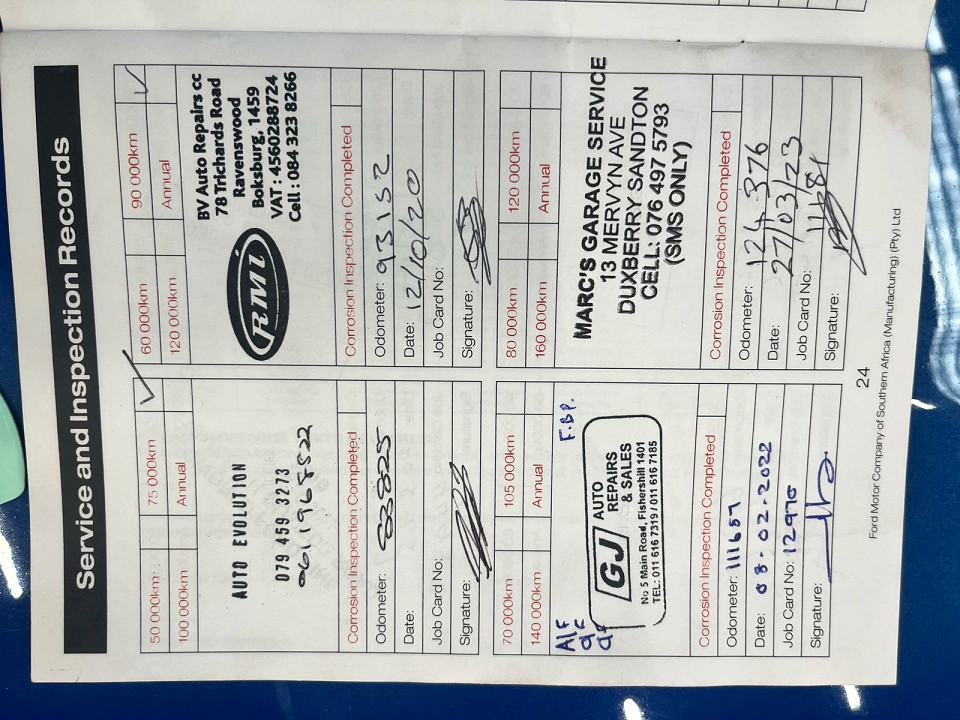 Service and Inspection Records
50 000km: 75 000km
100 000km Annual
AUTO EVOLUTION
079 459 3273
Corrosion Inspection Completed
Odometer: 83825
Date:
Job Card No:
Signature:
60 000km 90 000km
120 000km Annual
RMI
BV Auto Repairs cc
78 Trichards Road
Ravenswood
Boksburg, 1459
VAT : 4560288724
Cell : 084 323 8266
Corrosion Inspection Completed
Odometer: 93152
Date: 12/10/20
Job Card No:
Signature:
70 000km 105 000km
140 000km Annual
A/F F.B.P.
O/F
GJ AUTO
REPAIRS
& SALES
No 5 Main Road, Fishershill 1401
TEL: 011 616 7319 / 011 616 7185
Corrosion Inspection Completed
Odometer: 111657
Date: 08.02.2022
Job Card No: 12970
Signature:
80 000km 120 000km
160 000km Annual
MARC'S GARAGE SERVICE
13 MERVYN AVE
DUXBERRY SANDTON
CELL: 076 497 5793
(SMS ONLY)
Corrosion Inspection Completed
Odometer: 124 376
Date: 27/03/23
Job Card No: 11481
Signature:
24
Ford Motor Company of Southern Africa (Manufacturing) (Pty) Ltd